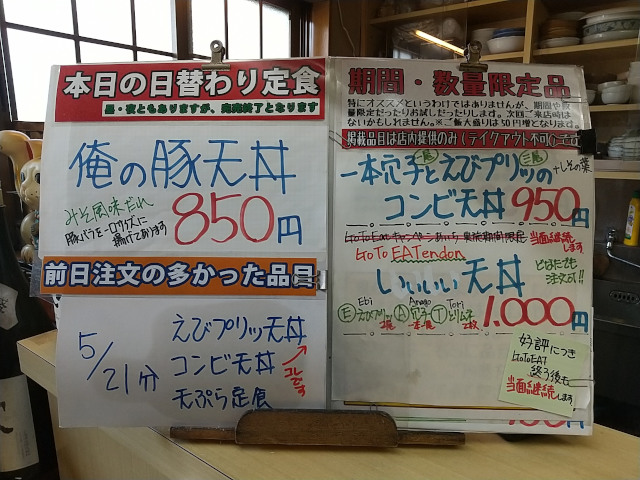 本日の日替わり定食
昼・夜ともありますが、売切終了となります
俺の豚天丼
みそ風味だれ
豚バラを一口サイズに
揚げてあります
850円
前日注文の多かった品目
5/21分
えびプリッ天丼
コンビ天丼
天ぷら定食
コレです
期間・数量限定品
特にオススメというわけではありませんが、期間や数
量限定だったりお試しだったりします。次回ご来店時は
ないかもしれません。※ご飯大盛りは50円増となります。
掲載品目は店内提供のみ(テイクアウト不可)
一本穴子とえびプリッの
二尾
+しその葉
コンビ天丼 950円
GoToEatキャンペーンあいち実施期間限定 当面継続します
GoTo EATendon
いいいい天丼
どなたでも
注文可!!
Ⓔ Ebi えびプリッ 2尾 Ⓐ Anago 穴子 一本 Ⓣ Tori とりムネ 2枚
1,000円
好評につき
GoToEAT
終了後も
当面継続します